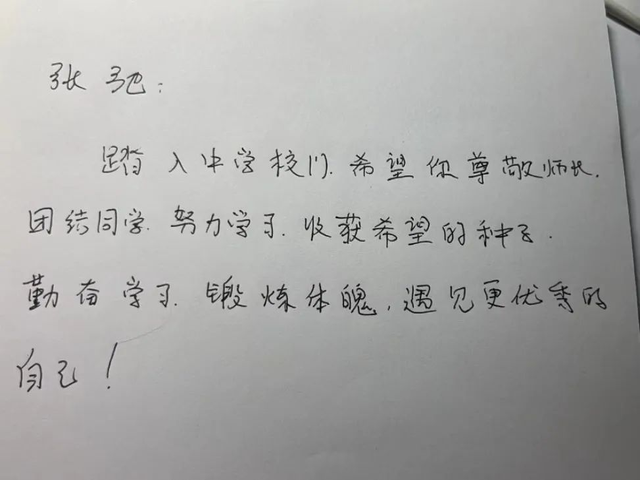 张弛：
踏入中学校门.希望你尊敬师长.
团结同学.努力学习.收获希望的种子.
勤奋学习.锻炼体魄,遇见更优秀的
自己！